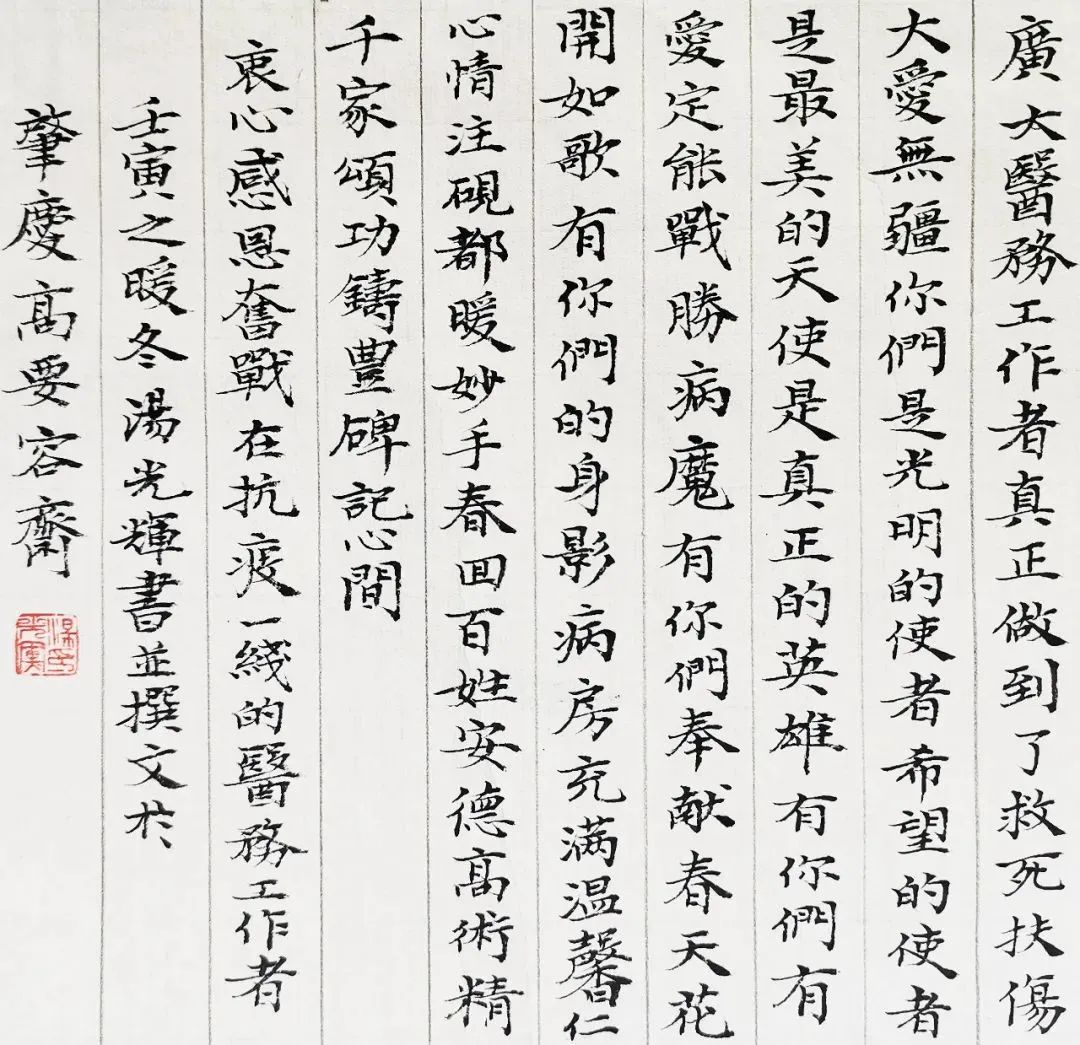 廣大醫務工作者真正做到了救死扶傷
大愛無疆你們是光明的使者希望的使者
是最美的天使是真正的英雄有你們有
愛定能戰勝病魔有你們奉献春天花
開如歌有你們的身影病房充满温馨仁
心情注硯都暖妙手春回百姓安德高術精
千家頌功鑄豐碑記心間
衷心感恩奮戰在抗疫一綫的醫務工作者
壬寅之暖冬湯光輝書並撰文於
肇慶高要容齋